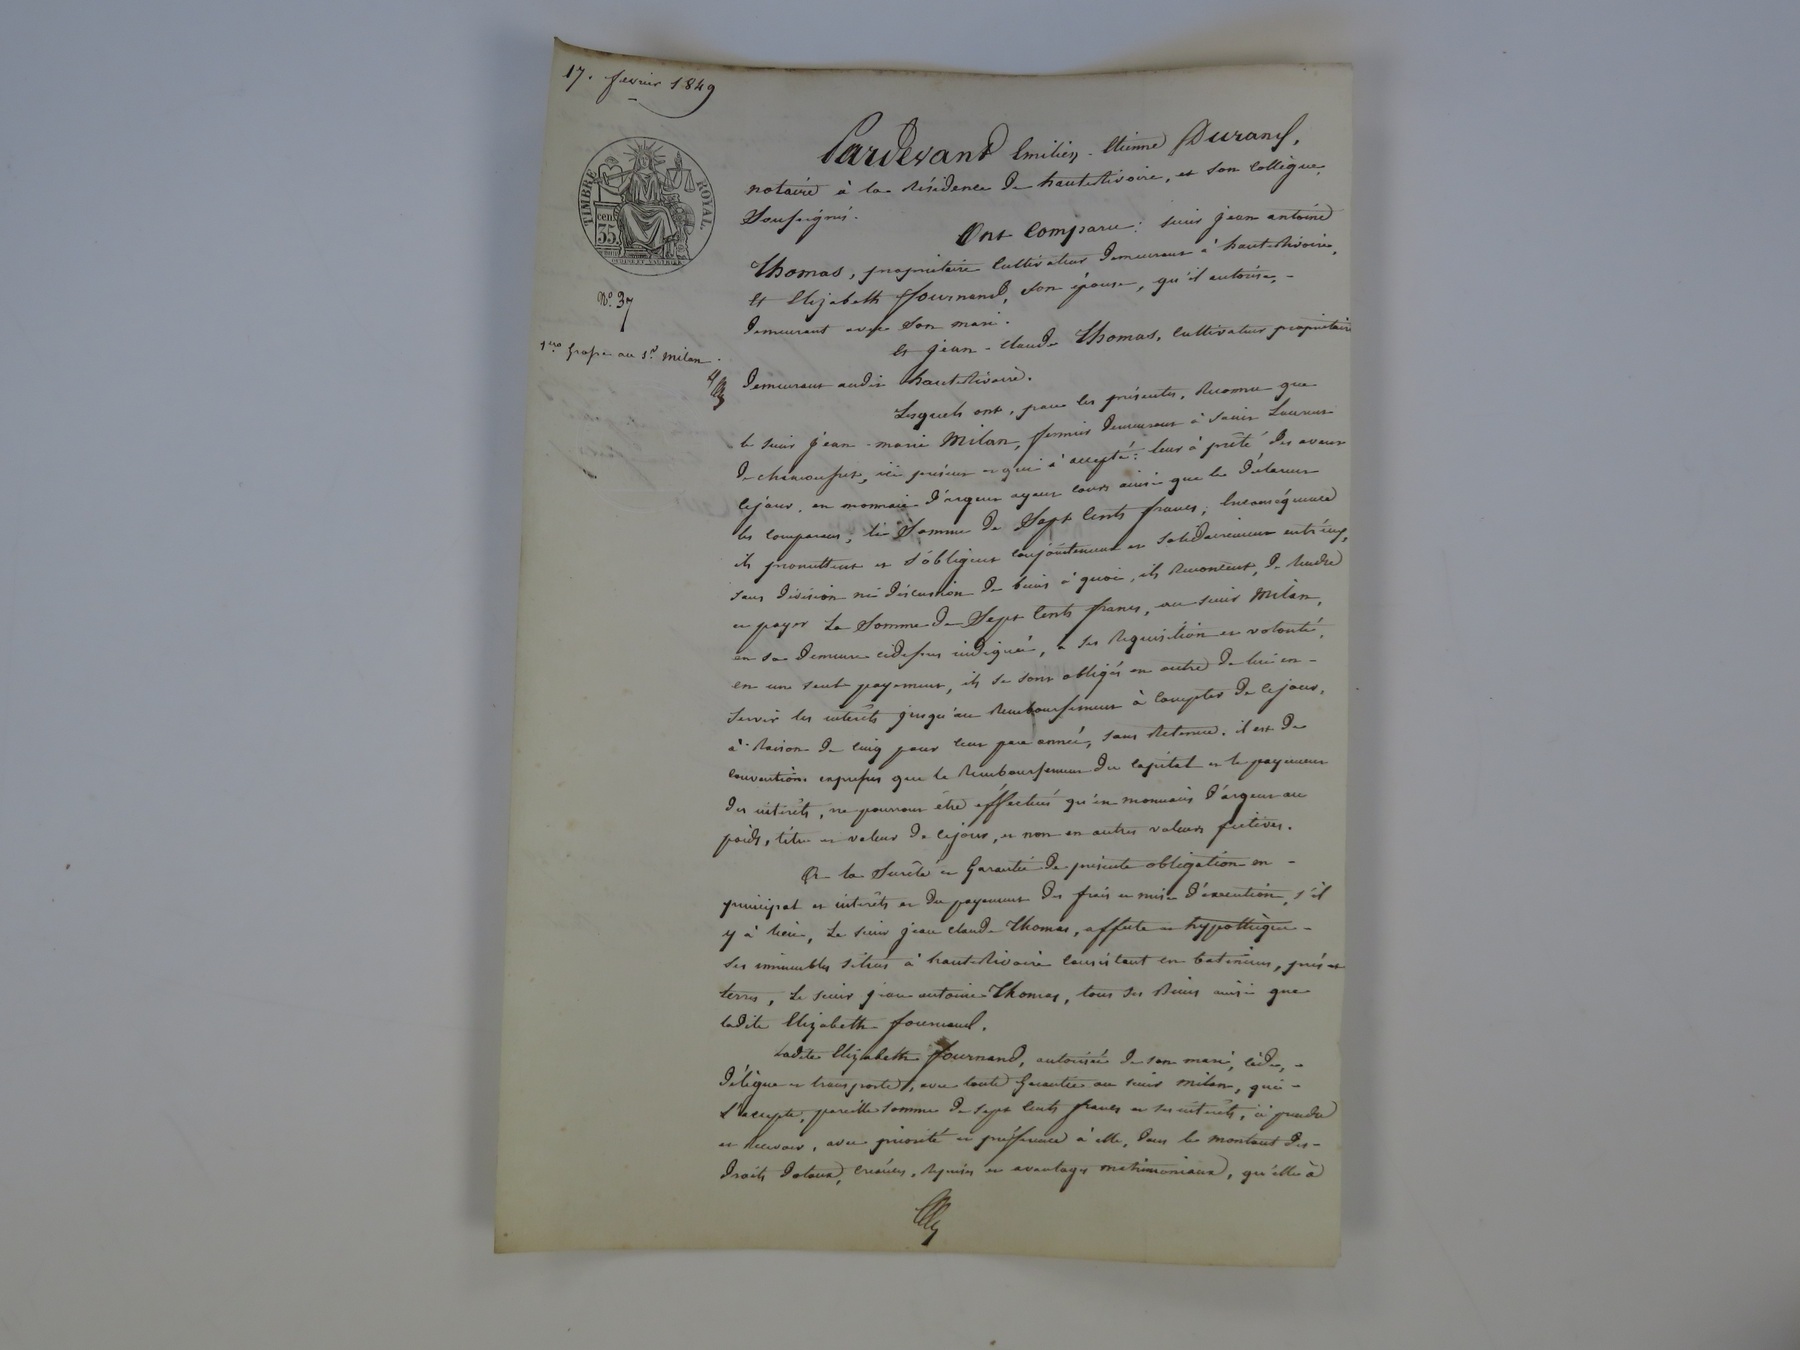 17. fevrier 1849
TIMBRE ROYAL
cen.
35
N.º 37
1ere Grosse au Sr. Milan.
Pardevant Emilien-Etienne Durand,
notaire à la Résidence de hauteRivoire, et son collègue,
Soussignés.
Ont Comparu: sieur jean antoine
Thomas, propriétaire cultivateur demeurant à hauteRivoire,
Et Elizabeth fournand, son épouse, qu'il autorise,-
demeurant avec son mari.
Et jean-claude Thomas, cultivateur propriétaire
demeurant audit hauteRivoire.
Lesquels ont, par les présentes, Reconnu que
le sieur jean-marie Milan, fermier demeurant à saint Laurent
de chamousset, ici présent et qui à accepté: leur à prêté dès avant
cejour, en monnaie d'argent ayant cours ainsi que le déclarent
les comparans, la Somme de Sept Cents francs; Enconséquence
ils promettent et s'obligent conjointement et solidairement entr'eux,
sans division ni discussion de biens à quoi, ils Renoncent, de Rendre
et payer la Somme de Sept Cents francs, au sieur Milan,
en sa demeure cidessus indiquée, à ses Réquisition et volonté,
en un seul payement, ils se sont obligés en outre de lui en-
servir les intérêts jusqu'au Remboursement à compter de cejour,
à Raison de cinq pour cent par année, sans Retenue. il est de
convention expresse que le Remboursement du capital et le payement
des intérêts, ne pourront être éffectués qu'en monnaie d'argent au
poids, titre et valeur de cejour, et non en autres valeurs fictives.
A la Sureté et Garantie de présente obligation en-
principal et intérêts et du payement des frais et mise d'exécution, s'il
y à lieu, Le sieur jean claude Thomas, affecte et hypothèque-
ses immeubles situés à hauteRivoire consistant en batimens, prés et
terres, Le sieur jean antoine Thomas, tous ses Biens ainsi que
ladite Elizabeth fournand.
Ladite Elizabeth fournand, autorisée de son mari, cède,-
délègue et transporte, avec toute Garantie au sieur milan, qui-
L'accepte, pareille somme de sept cents francs et ses intérêts, à prendre
et Recevoir, avec priorité et préférence à elle, dans le montant des-
Droits Dotaux, créances, Reprises et avantages matrimoniaux, qu'elle à